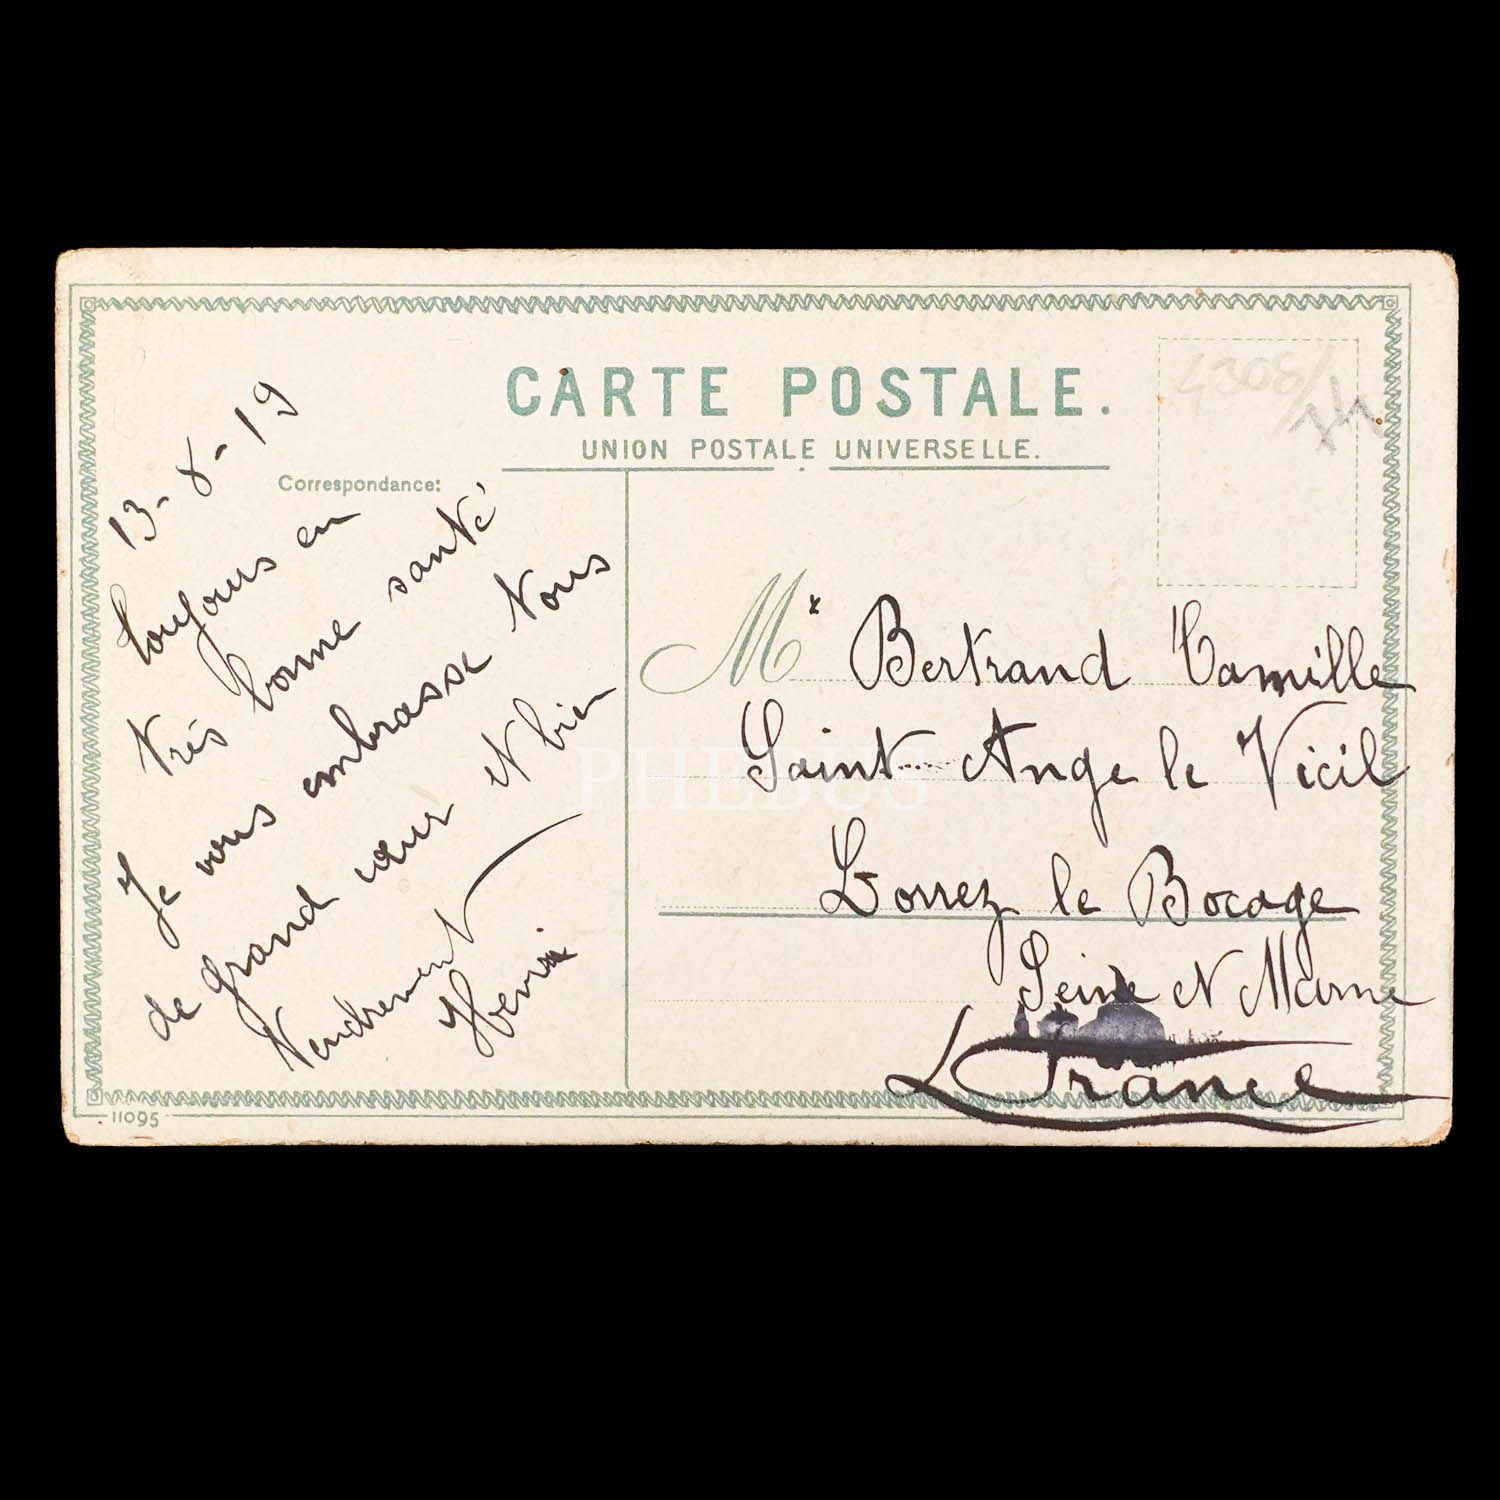 CARTE POSTALE.
UNION POSTALE UNIVERSELLE.
Correspondance:
13-8-19
Toujours en
très bonne santé
Je vous embrasse tous
de grand cœur et bien
tendrement
Henri
Mr Bertrand Camille
Saint Ange le Vieil
Lorrez le Bocage
Seine et Marne
France
4308/
11095
PHEBUS